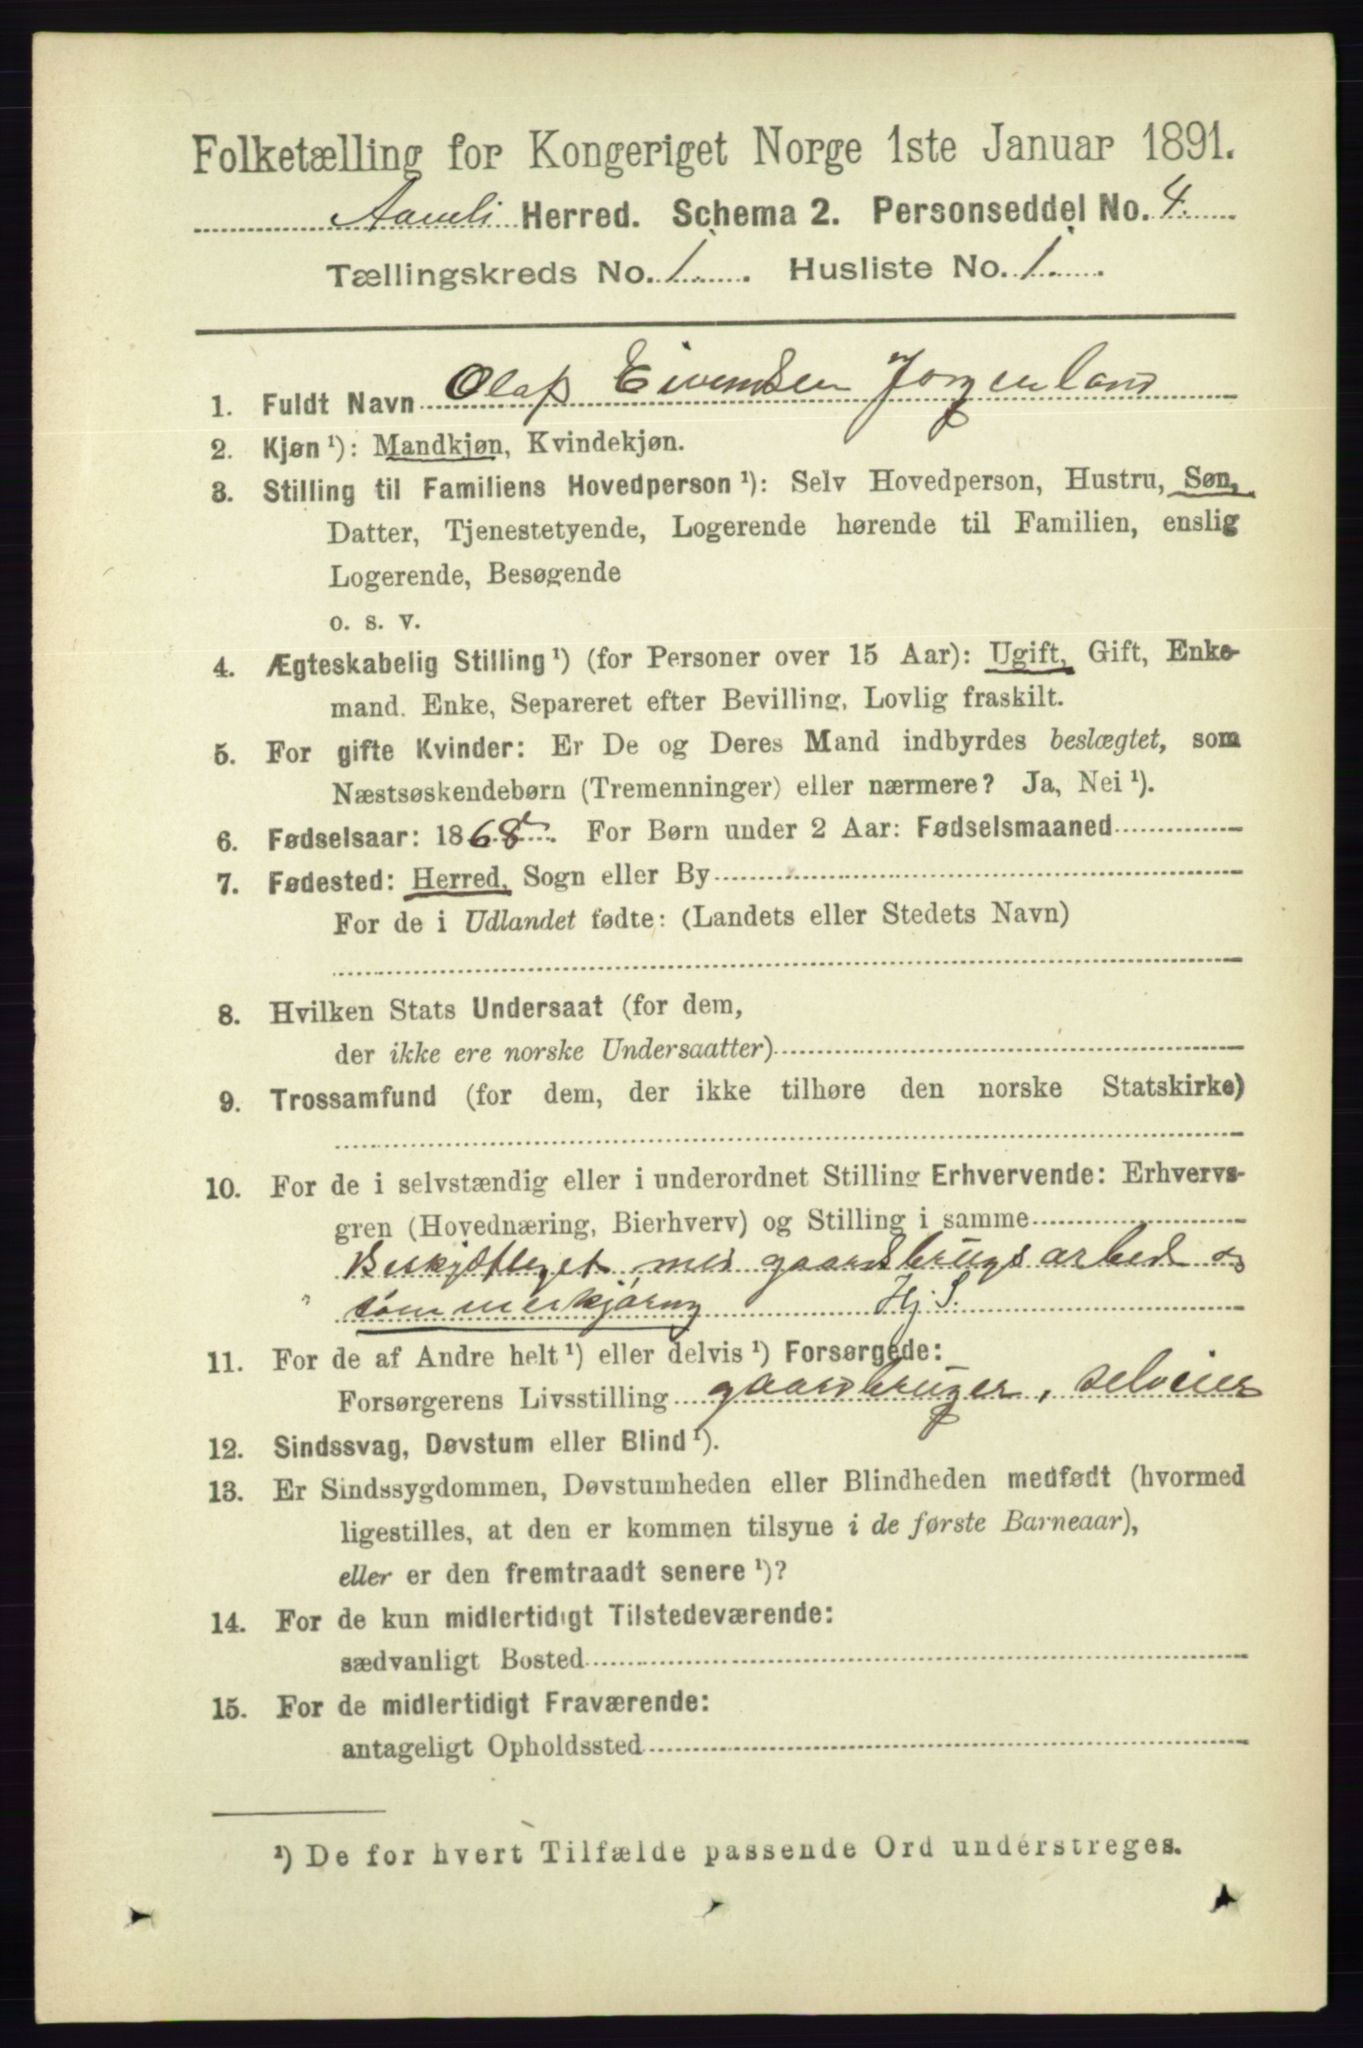 Folketælling for Kongeriget Norge 1ste Januar 1891.
Aamli Herred. Schema 2. Personseddel No. 4.
Tællingskreds No. 1. Husliste No. 1.
1. Fuldt Navn Olaf Eivendsen Jorgenland
2. Kjøn ¹): Mandkjøn, Kvindekjøn.
3. Stilling til Familiens Hovedperson ¹): Selv Hovedperson, Hustru, Søn,
Datter, Tjenestetyende, Logerende hørende til Familien, enslig
Logerende, Besøgende
o. s. v.
4. Ægteskabelig Stilling ¹) (for Personer over 15 Aar): Ugift, Gift, Enke-
mand. Enke, Separeret efter Bevilling, Lovlig fraskilt.
5. For gifte Kvinder: Er De og Deres Mand indbyrdes beslægtet, som
Næstsøskendebørn (Tremenninger) eller nærmere? Ja, Nei ¹).
6. Fødselsaar: 1868. For Børn under 2 Aar: Fødselsmaaned
7. Fødested: Herred, Sogn eller By
For de i Udlandet fødte: (Landets eller Stedets Navn)
8. Hvilken Stats Undersaat (for dem,
der ikke ere norske Undersaatter)
9. Trossamfund (for dem, der ikke tilhøre den norske Statskirke)
10. For de i selvstændig eller i underordnet Stilling Erhvervende: Erhvervs-
gren (Hovednæring, Bierhverv) og Stilling i samme
Beskjæftiget med gaardsbrugsarbeid &
tømmerkjøring Hj. S.
11. For de af Andre helt ¹) eller delvis ¹) Forsørgede:
Forsørgerens Livsstilling gaardbruger, selveier
12. Sindssvag, Døvstum eller Blind ¹).
13. Er Sindssygdommen, Døvstumheden eller Blindheden medfødt (hvormed
ligestilles, at den er kommen tilsyne i de første Barneaar),
eller er den fremtraadt senere ¹)?
14. For de kun midlertidigt Tilstedeværende:
sædvanligt Bosted
15. For de midlertidigt Fraværende:
antageligt Opholdssted
¹) De for hvert Tilfælde passende Ord understreges.